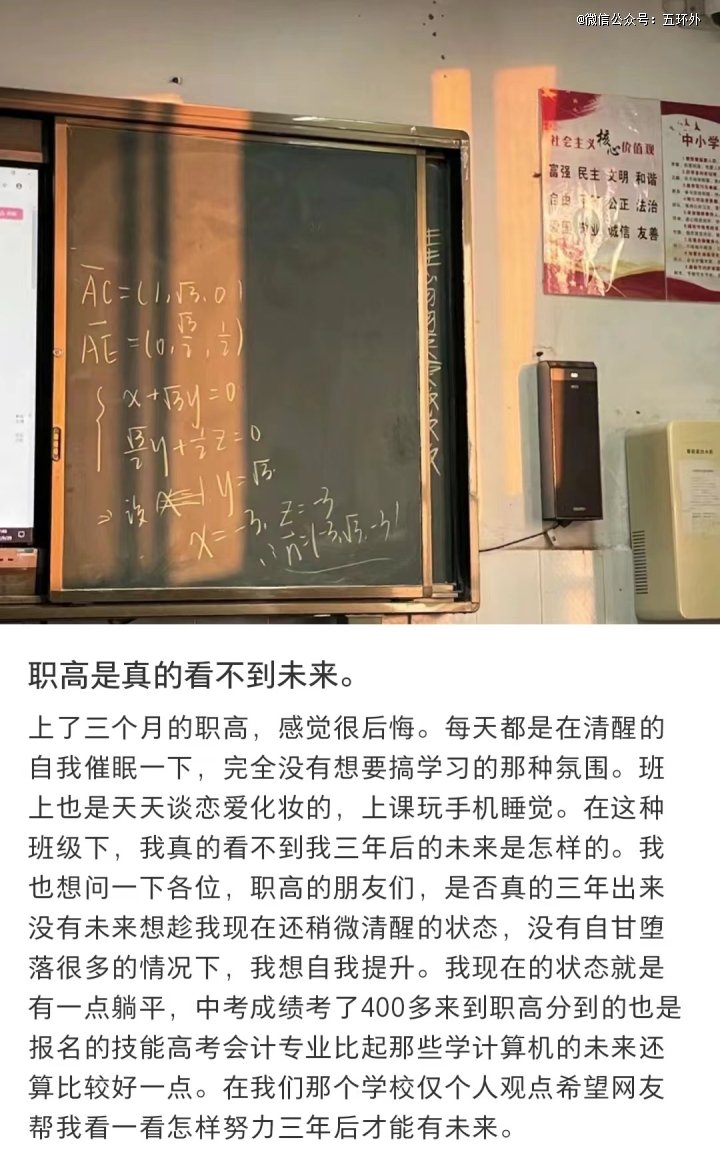 @微信公众号：五环外
社会主义核心价值观
中小学
富强 民主 文明 和谐
自由 公正 法治
诚信 友善
AC=(1,√3,0)
AE=(0,√3/2,1/2)
x+√3y=0
√3/2y+1/2z=0
⇒设 y=√3
x=-3, z=-3
∴n=(-3,√3,-3)
职高是真的看不到未来。
上了三个月的职高，感觉很后悔。每天都是在清醒的
自我催眠一下，完全没有想要搞学习的那种氛围。班
上也是天天谈恋爱化妆的，上课玩手机睡觉。在这种
班级下，我真的看不到我三年后的未来是怎样的。我
也想问一下各位，职高的朋友们，是否真的三年出来
没有未来想趁我现在还稍微清醒的状态，没有自甘堕
落很多的情况下，我想自我提升。我现在的状态就是
有一点躺平，中考成绩考了400多来到职高分到的也是
报名的技能高考会计专业比起那些学计算机的未来还
算比较好一点。在我们那个学校仅个人观点希望网友
帮我看一看怎样努力三年后才能有未来。